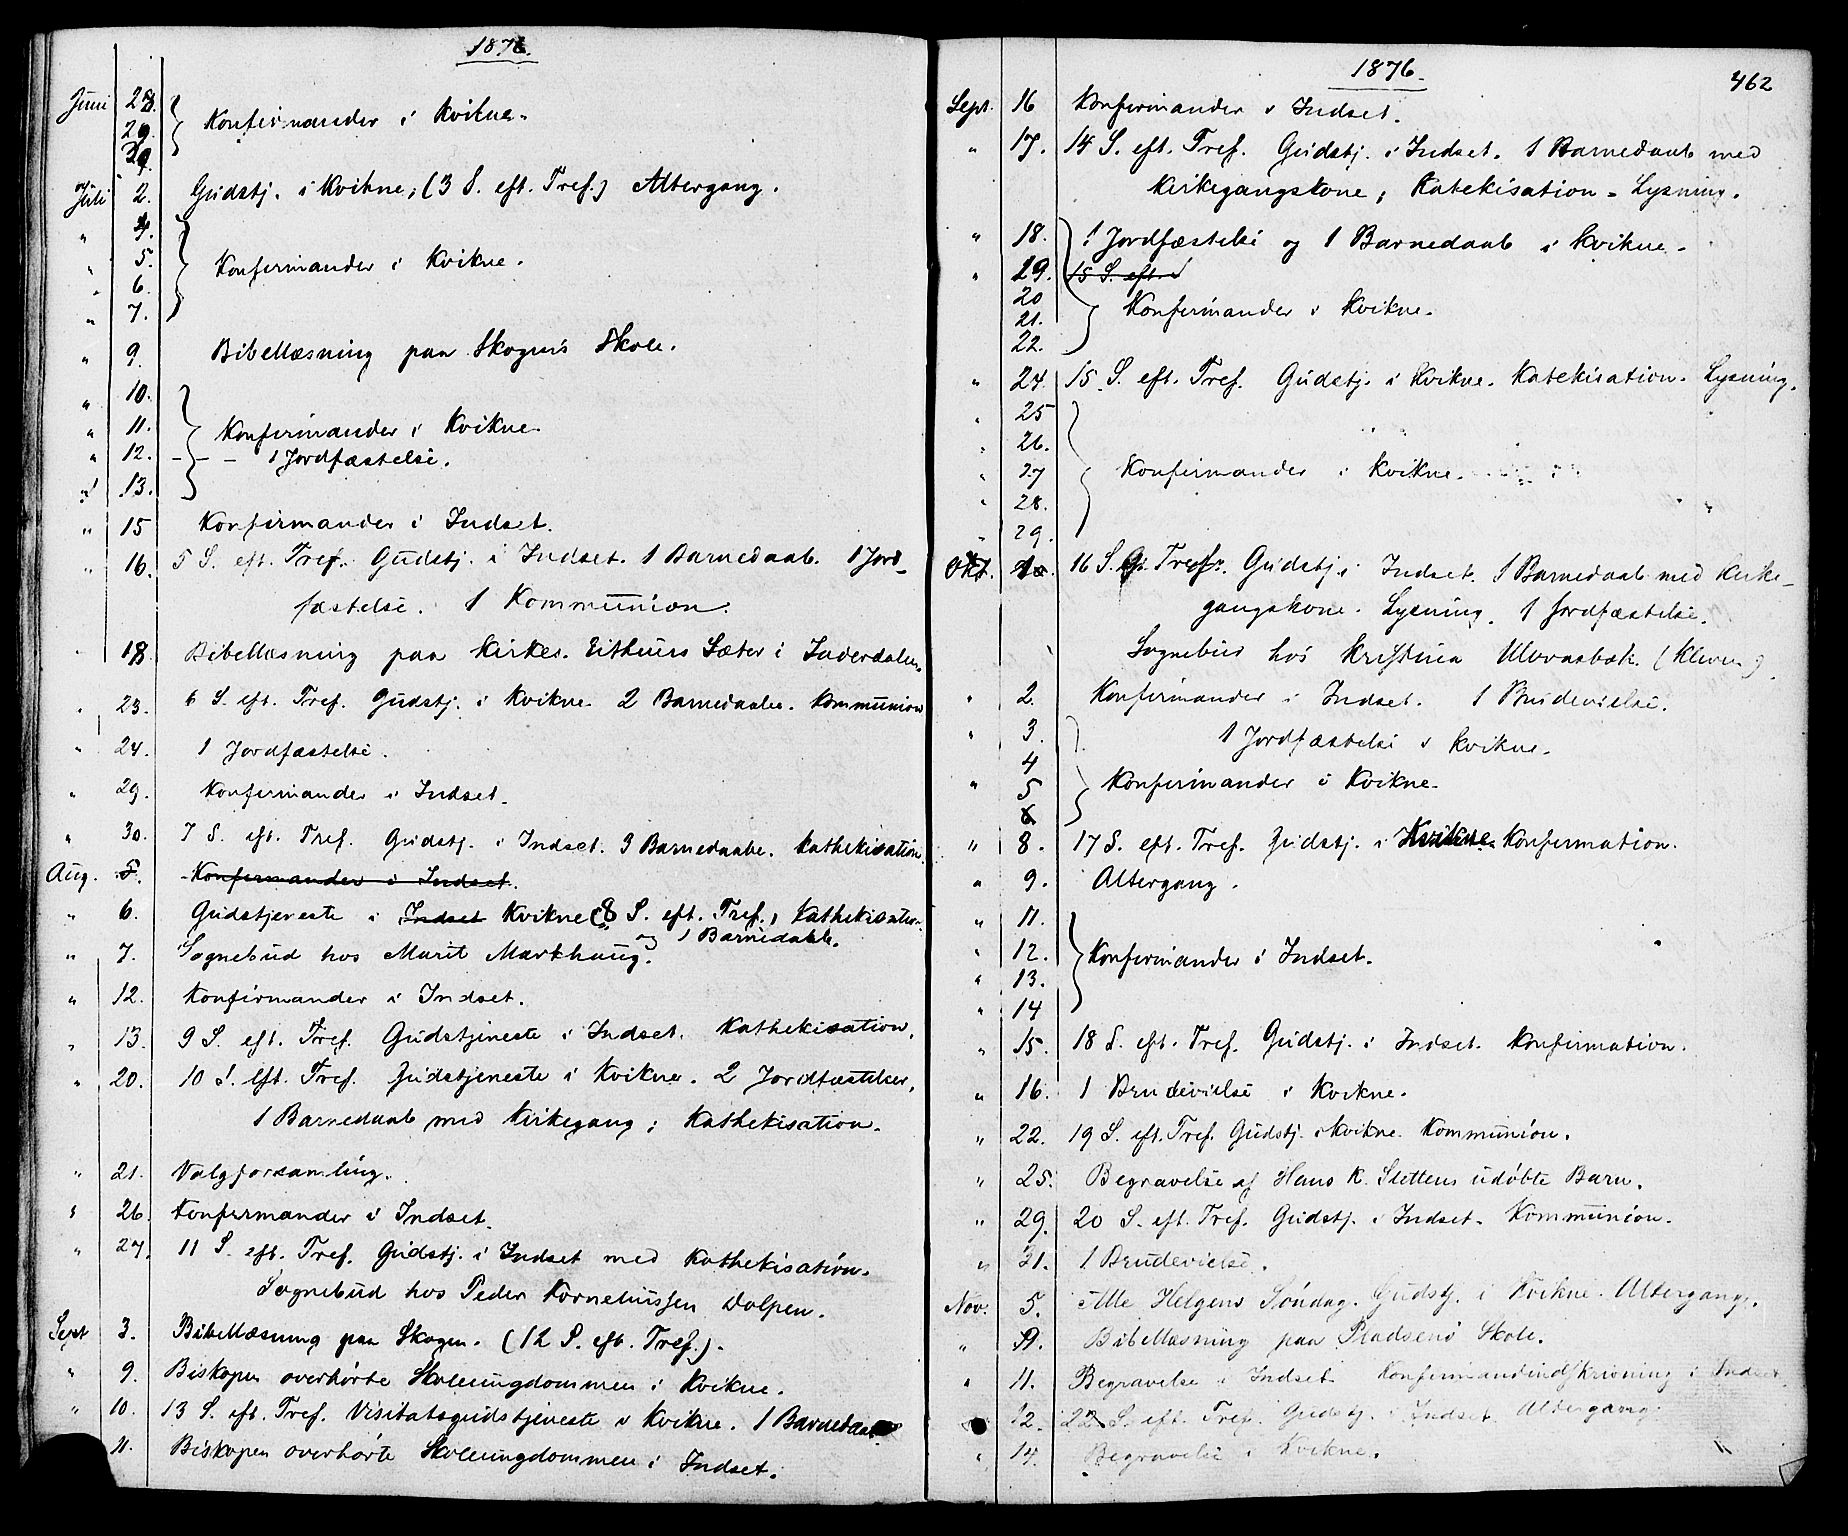 1876.
Juni 28. Konfirmander i Kvikne.
29.
30.
og Juli 2. Gudstj. i Kvikne; (3 S. eft. Tref.) Altergang.
" 4.
" 5. Konfirmander i Kvikne.
" 6.
" 7.
" 9. Bibellæsning paa Skogens Skole.
" 10.
" 11. Konfirmander i Kvikne.
" 12. - - - 1 Jordfæstelse.
" 13.
" 15 Konfirmander i Indset.
" 16. 5 S. eft. Tref. Gudstj. i Indset. 1 Barnedaab. 1 Jord-
fæstelse. 1 Kommunion.
" 18. Bibellæsning paa Kirkes. Sæter i Inderdalen.
" 23. 6 S. eft. Tref. Gudstj. i Kvikne. 2 Barnedaabe. Kommunion
" 24. 1 Jordfæstelse.
" 29. Konfirmander i Indset.
" 30. 7 S. eft. Tref. Gudstj. i Indset. 3 Barnedaabe. Kathekisation.
Aug. 5. Konfirmander i Indset.
" 6. Gudstjeneste i Indset Kvikne (8 S. eft. Tref.) Kathekisation
og 1 Barnedaab.
" 7. Sognebud hos Marit Markhaug.
" 12. Konfirmander i Indset.
" 13. 9 S. eft. Tref. Gudstjeneste i Indset. Kathekisation.
" 20. 10 S. eft. Tref. Gudstjeneste i Kvikne. 2 Jordfæstelser,
1 Barnedaab med Kirkegang; Kathekisation.
" 21. Valgforsamling.
" 26. Konfirmander i Indset.
" 27. 11 S. eft. Tref. Gudstj. i Indset med Kathekisation.
Sognebud hos Peder Korneliussen Dolpen.
Sept 3. Bibellæsning paa Skogen. (12 S. eft. Tref.).
" 9. Biskopen overhørte Skoleungdommen i Kvikne.
" 10. 13 S. eft. Tref. Visitatsgudstjeneste i Kvikne. 1 Barnedaab
11. Biskopen overhørte Skoleungdommen i Indset.
1876.
462
Sept. 16 Konfirmander i Indset.
" 17. 14 S. eft. Tref. Gudstj. i Indset. 1 Barnedaab med
Kirkegangskone; Katekisation - Lysning.
" 18. 1 Jordfæstelse og 1 Barnedaab i Kvikne.
" 19. 15 S. eft.
20
21. Konfirmander i Kvikne.
22.
" 24. 15 S. eft. Tref. Gudstj. i Kvikne. Katekisation. Lysning.
" 25
" 26.
" 27 Konfirmander i Kvikne.
" 28.
" 29.
Okt. 1. 16 S. e. Tref. Gudstj. i Indset. 1 Barnedaab med Kirke-
gangskone. Lysning. 1 Jordfæstelse.
Sognebud hos Kristina Ulvvasbæk. (Kleven).
" 2. Konfirmander i Indset. 1 Brudevielse.
" 3. 1 Jordfæstelse i Kvikne.
4
" 5 Konfirmander i Kvikne.
6
" 8. 17 S. eft. Tref. Gudstj. i Kvikne. Konfirmation.
" 9. Altergang.
" 11.
" 12. Konfirmander i Indset.
" 13.
" 14
" 15. 18 S. eft. Tref. Gudstj. i Indset. Konfirmation.
" 16. 1 Brudevielse i Kvikne.
" 22. 19 S. eft. Tref. Gudstj. i Kvikne. Kommunion.
" 25. Begravelse af Hans K. Slettens udøbte Barn.
" 29. 20 S. eft. Tref. Gudstj. i Indset. Kommunion.
" 31. 1 Brudevielse.
Nov. 5. Alle Helgens Søndag. Gudstj. i Kvikne. Altergang.
" 9. Bibellæsning paa Pladsens Skole.
" 11. Begravelse i Indset. Konfirmandindskrivning i Indset.
12. 22 S. eft. Tref. Gudstj. i Indset. Altergang.
" 14. Begravelse i Kvikne.